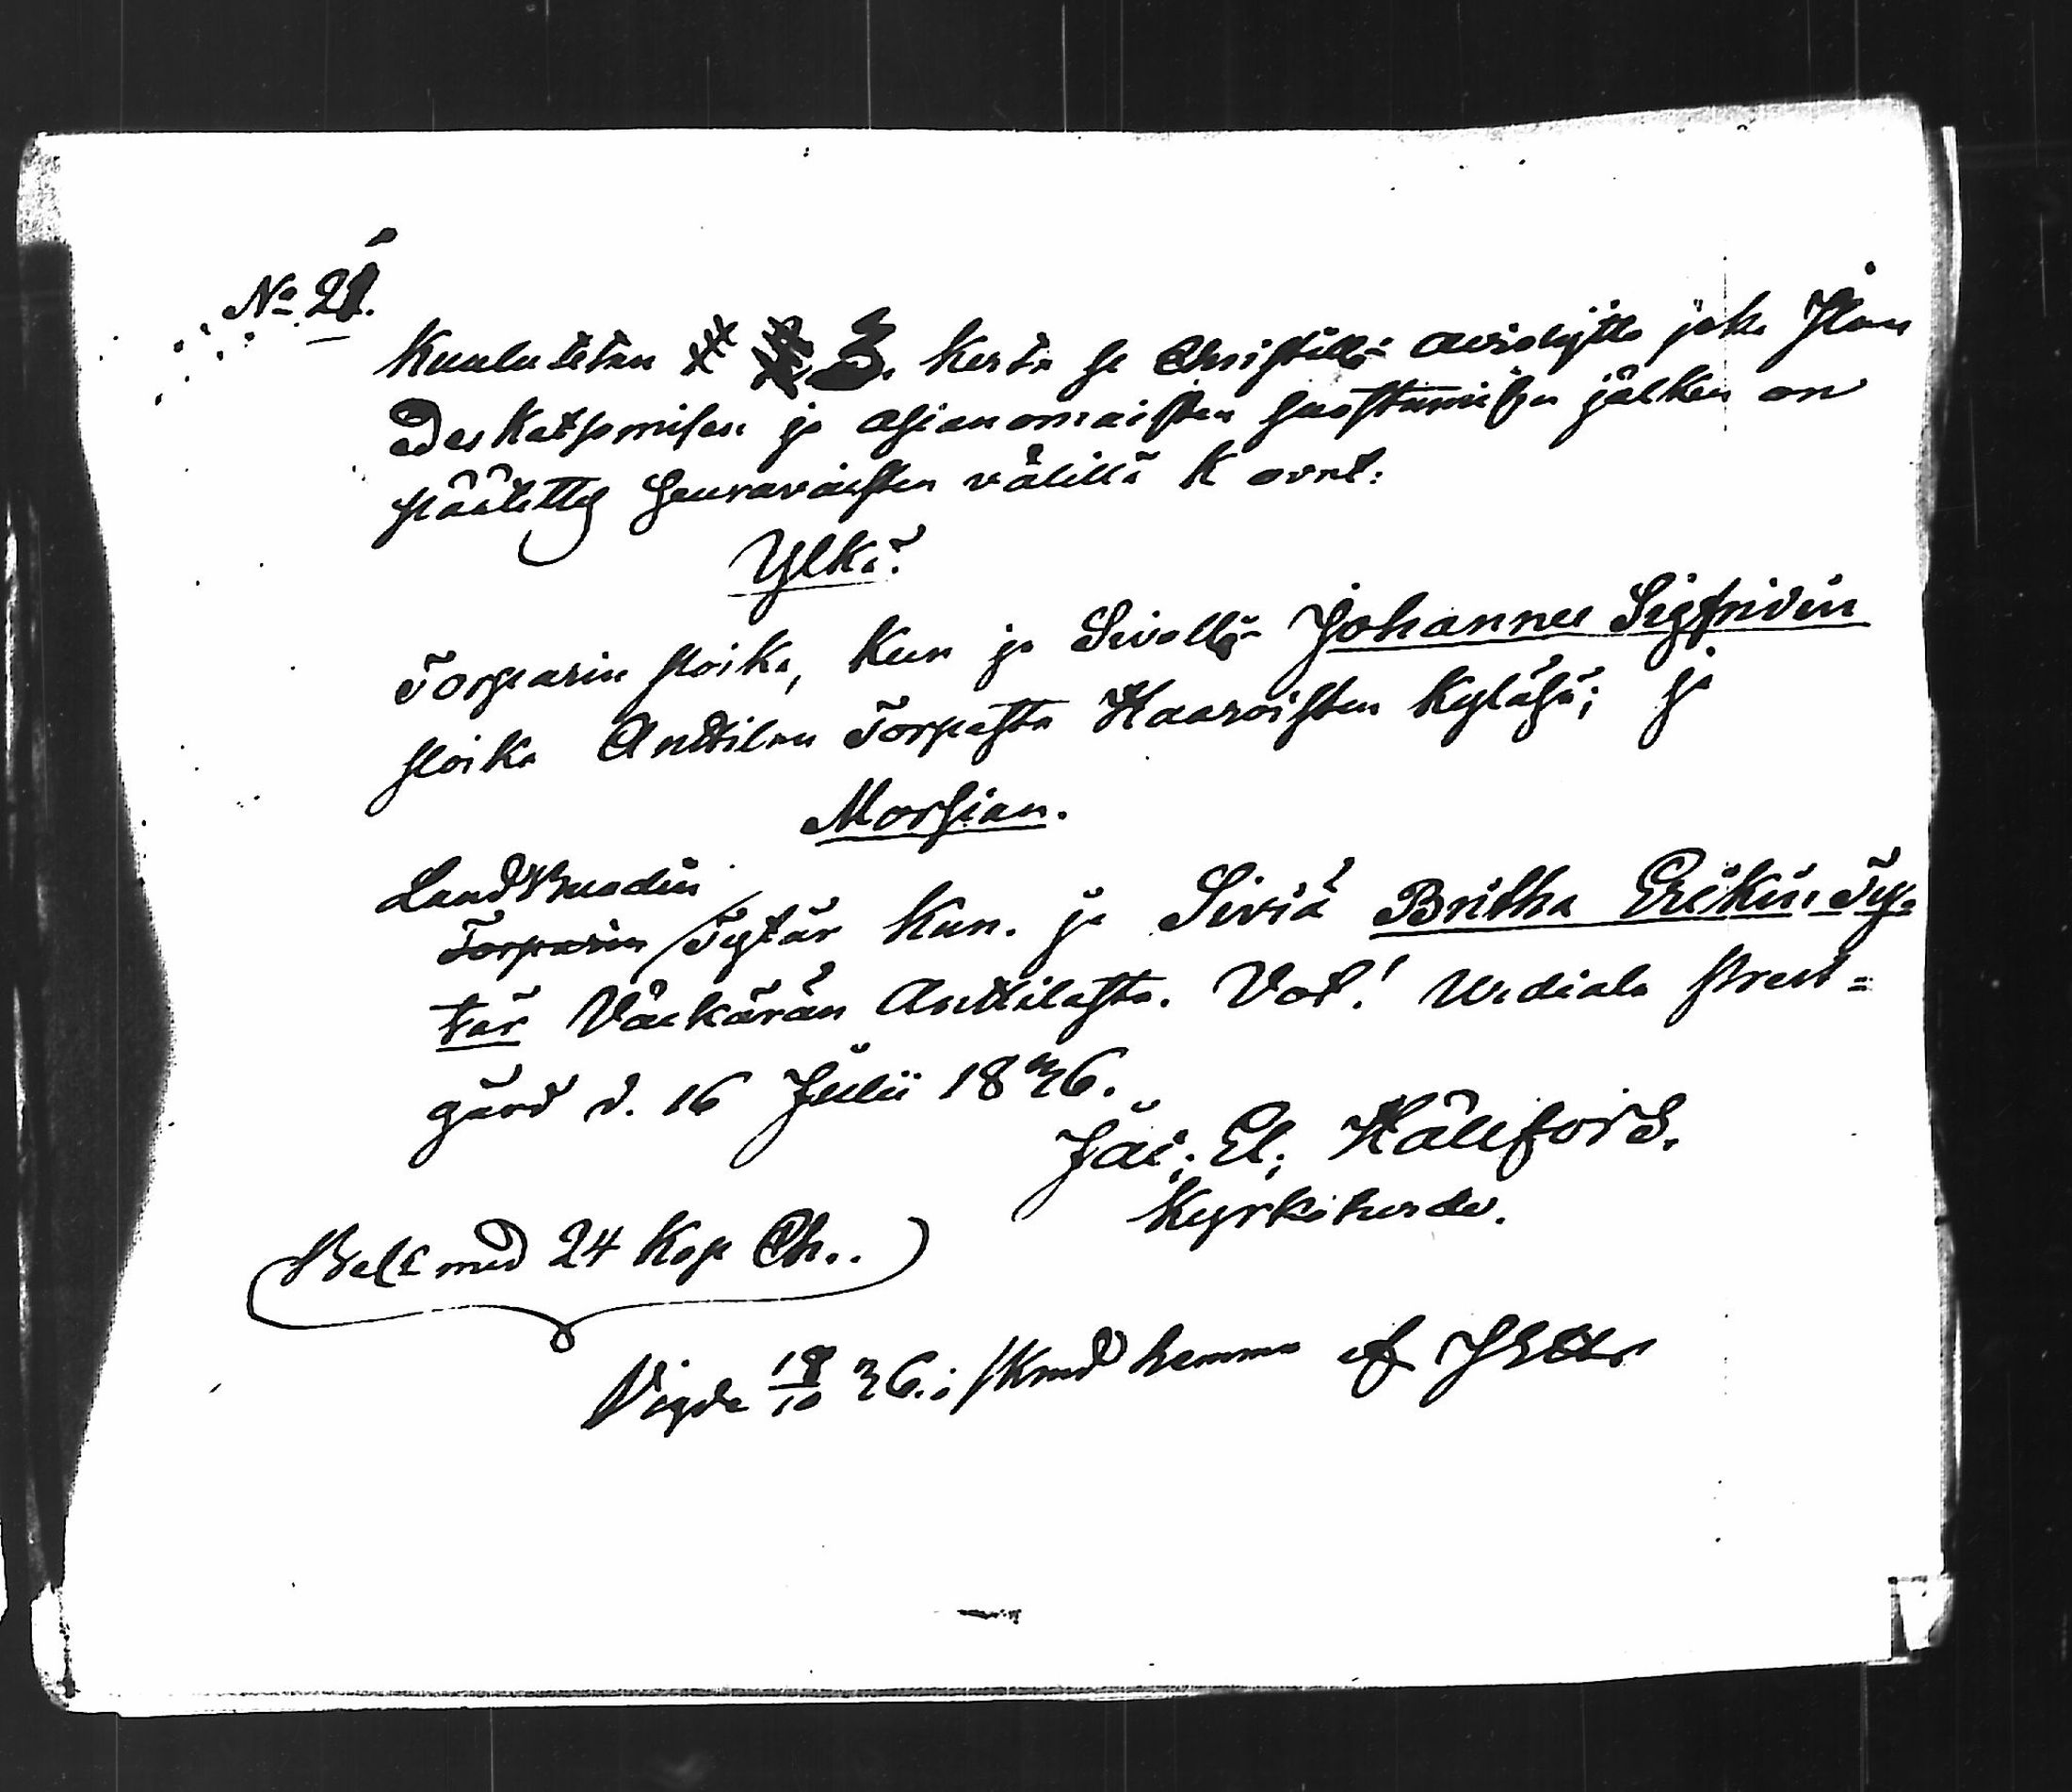 No 21.
Kuulutetan 3. kerta se Christillä avioskäytto joka Ilon
Edeskatsomisen ja asianomaisten suostumisen jälken on
päätetty seuravaisten välillä K ovat:
Ylkä:
Torparin poika, Kun ja Siviä Johannes Sigfridin
poika Anttilan Torpasta Haaroisten Kyläsä; ja
Morsian.
Landbuodin
Torparin Tytär Kun. ja Siviä Britha Erikin Ty-
tär Väckärän Anttilasta. Vot! Urdiala Prest-
gård d. 16 Julii 1836.
Jac. El. Hällfors.
Kyrkoherde.
Belt med 24 Kop Ch..
Vigde 18/10 36. i / hemma af